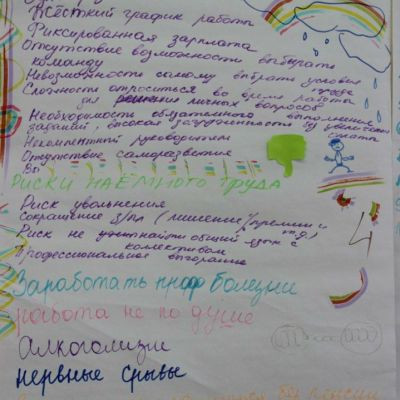 Жёсткий график работы
Фиксированная зарплата
Отсутствие возможности выбирать
команду
Невозможность самому выбрать условия
труда
Сложность отпроситься во время работы
для решения личных вопросов
Необходимость обязательного выполнения
заданий, высокая загруженность без увеличения
Некомпетентный руководитель
Отсутствие саморазвития
РИСКИ НАЁМНОГО ТРУДА
Риск увольнения
Сокращение з/пл (лишение/премии и
т.д)
Риск не найти общий язык с
коллективом
Профессиональное выгорание
Заработать проф болезни
работа не по душе
Алкоголизм
нервные срывы